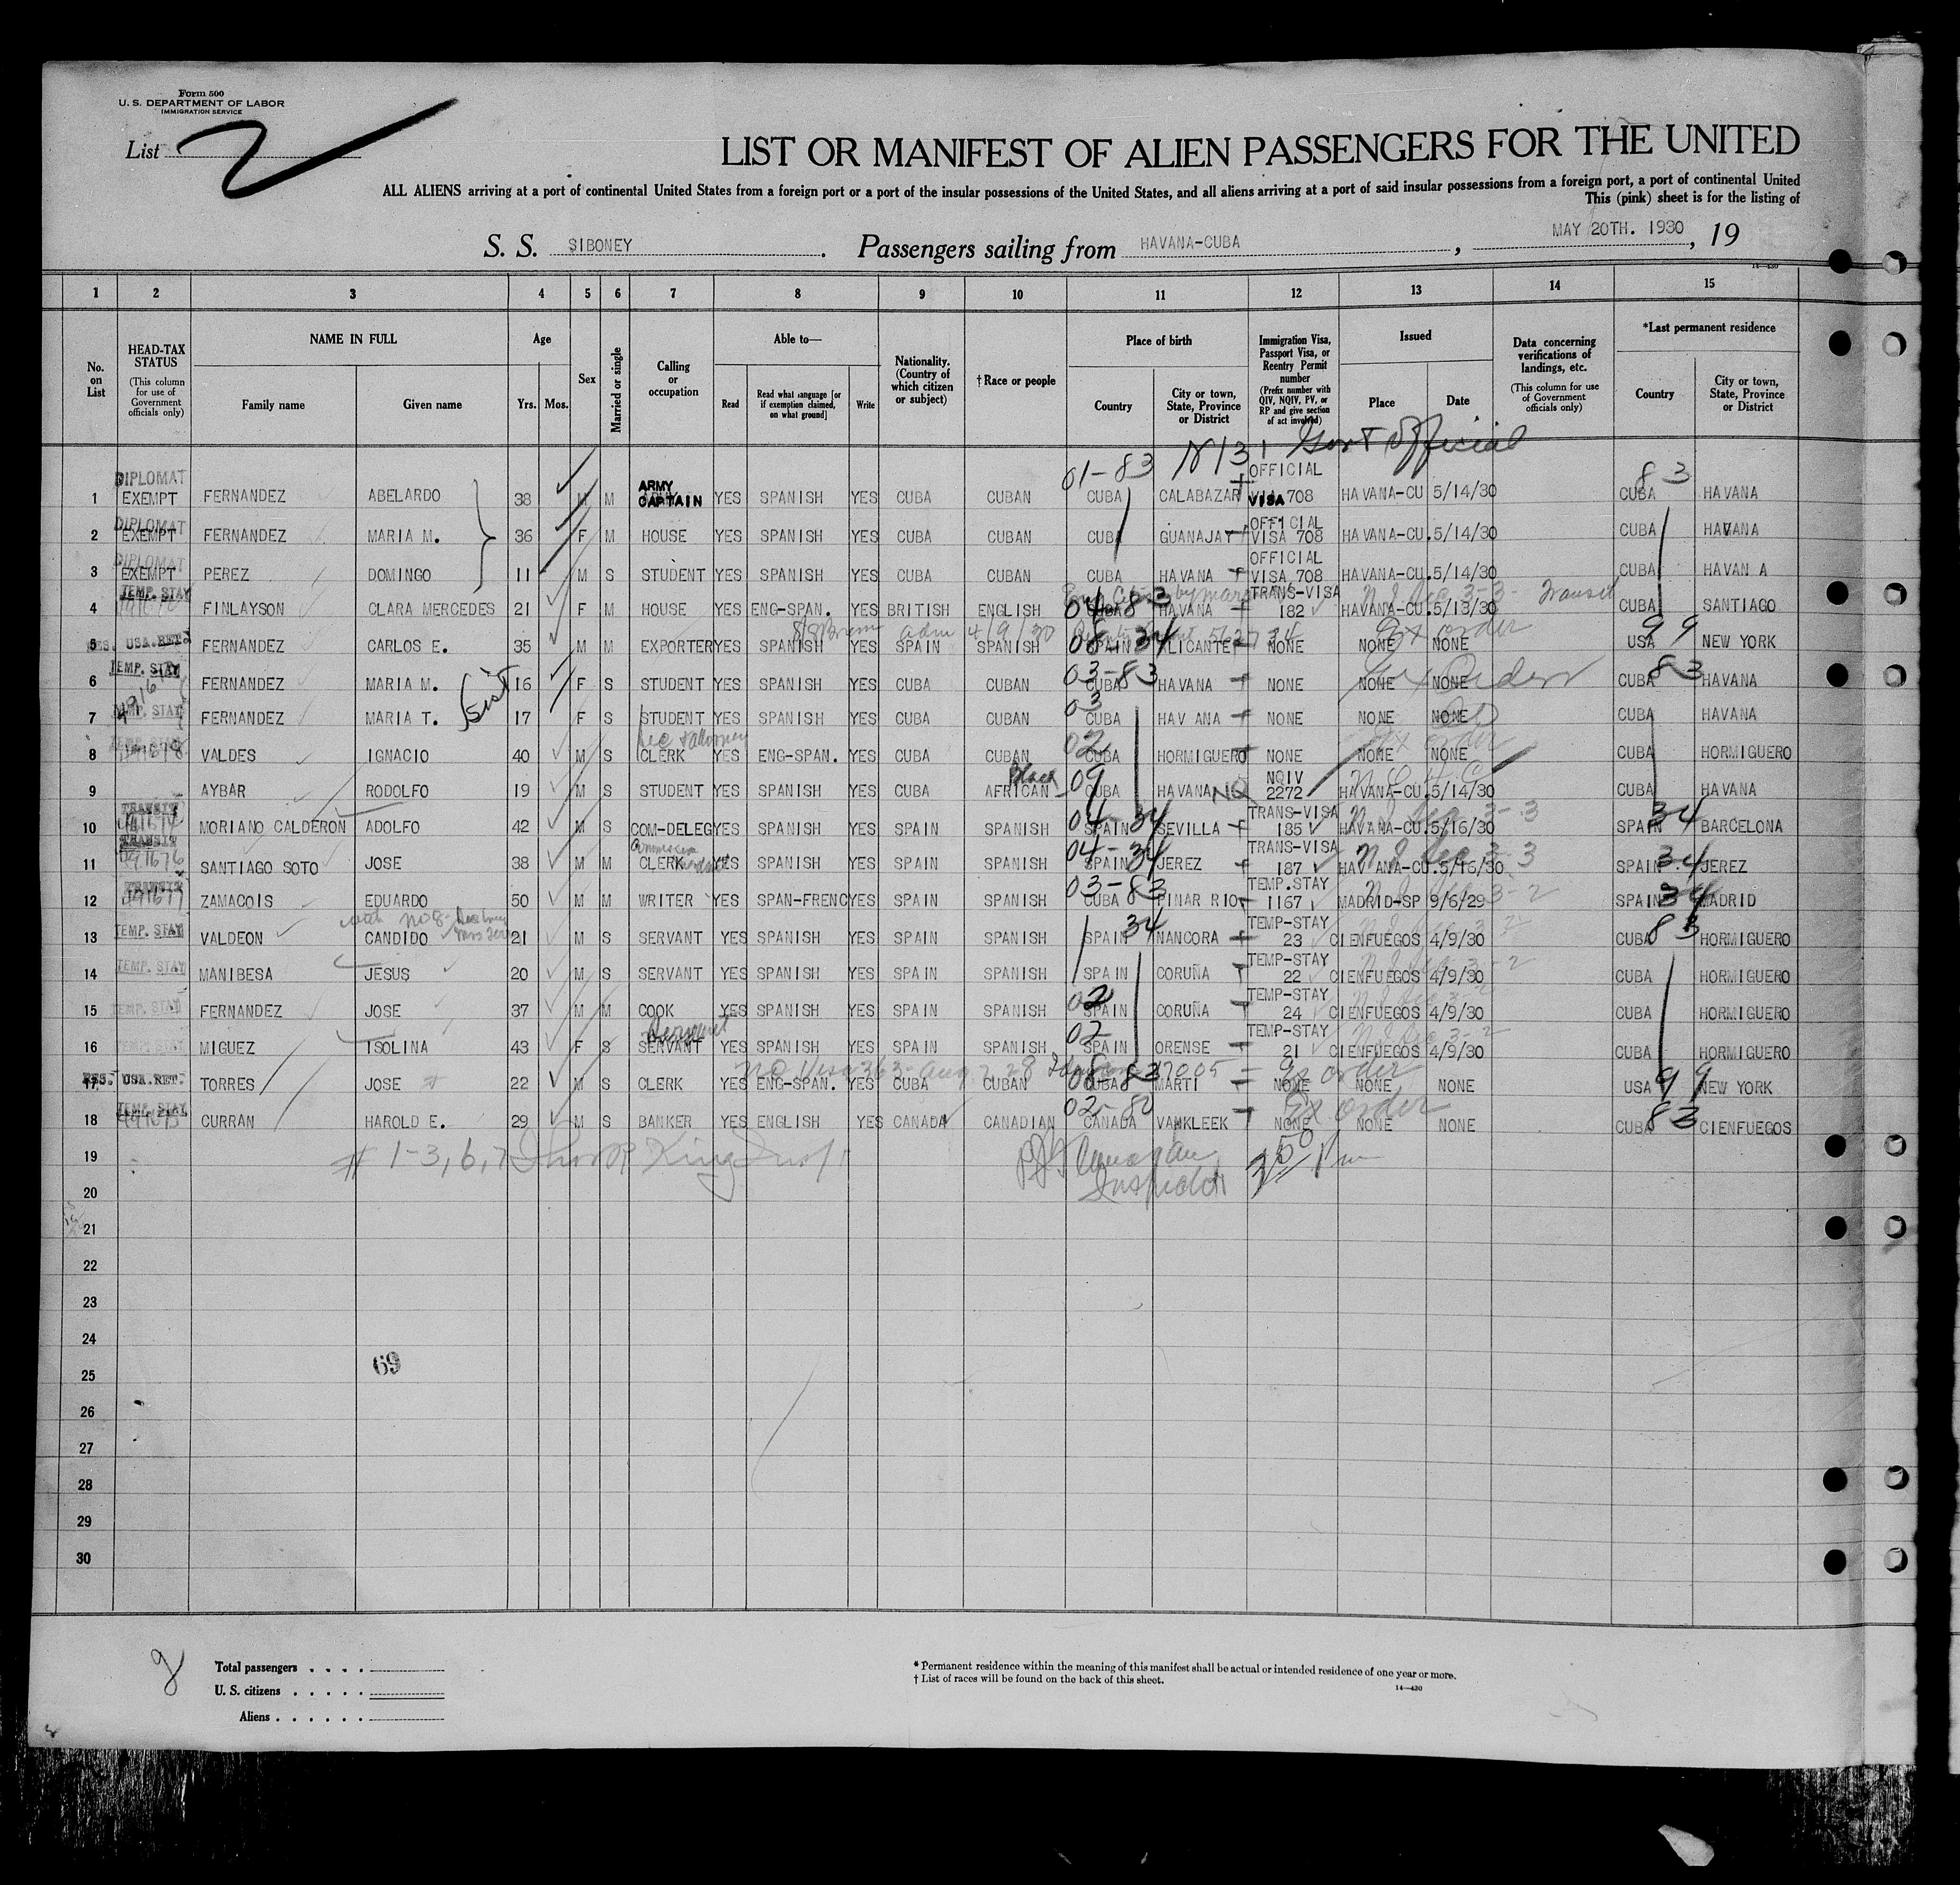 Form 500
U. S. DEPARTMENT OF LABOR
IMMIGRATION SERVICE
List 2
LIST OR MANIFEST OF ALIEN PASSENGERS FOR THE UNITED
ALL ALIENS arriving at a port of continental United States from a foreign port or a port of the insular possessions of the United States, and all aliens arriving at a port of said insular possessions from a foreign port, a port of continental United
This (pink) sheet is for the listing of
S. S. SIBONEY. Passengers sailing from HAVANA-CUBA, MAY 20TH. 1930, 19
14—430
1 2 3 4 5 6 7 8 9 10 11 12 13 14 15
No. on List
HEAD-TAX STATUS
(This column for use of Government officials only)
NAME IN FULL
Family name Given name
Age
Yrs. Mos.
Sex
Married or single
Calling or occupation
Able to—
Read
Read what language [or if exemption claimed, on what ground]
Write
Nationality. (Country of which citizen or subject)
†Race or people
Place of birth
Country
City or town, State, Province or District
Immigration Visa, Passport Visa, or Reentry Permit number
(Prefix number with QIV, NQIV, PV, or RP and give section of act involved)
Issued
Place Date
Data concerning verifications of landings, etc.
(This column for use of Government officials only)
*Last permanent residence
Country
City or town, State, Province or District
Gov't Official
DIPLOMAT 01-83 OFFICIAL 83
1 EXEMPT FERNANDEZ ABELARDO 38 M M ARMY CAPTAIN YES SPANISH YES CUBA CUBAN CUBA CALABAZAR VISA 708 HAVANA-CU. 5/14/30 CUBA HAVANA
DIPLOMAT OFFICIAL
2 EXEMPT FERNANDEZ MARIA M. 36 F M HOUSE YES SPANISH YES CUBA CUBAN CUBA GUANAJAY VISA 708 HAVANA-CU. 5/14/30 CUBA HAVANA
DIPLOMAT OFFICIAL
3 EXEMPT PEREZ DOMINGO 11 M S STUDENT YES SPANISH YES CUBA CUBAN CUBA HAVANA VISA 708 HAVANA-CU. 5/14/30 CUBA HAVAN A
TEMP. STAY TRANS-VISA 3-3- Transit
4 FINLAYSON CLARA MERCEDES 21 F M HOUSE YES ENG-SPAN. YES BRITISH ENGLISH 04 83 CUBA HAVANA 182 HAVANA-CU. 5/13/30 CUBA SANTIAGO
adm 4/9/30 Ex order
5 RES. USA.RET. FERNANDEZ CARLOS E. 35 M M EXPORTER YES SPANISH YES SPAIN SPANISH 08 34 SPAIN ALICANTE NONE NONE NONE 99 USA NEW YORK
TEMP. STAY 03-83 Ex Order 83
6 FERNANDEZ MARIA M. 16 F S STUDENT YES SPANISH YES CUBA CUBAN CUBA HAVANA NONE NONE NONE CUBA HAVANA
03
7 TEMP. STAY FERNANDEZ MARIA T. 17 F S STUDENT YES SPANISH YES CUBA CUBAN CUBA HAV ANA NONE NONE NONE CUBA HAVANA
TEMP. STAY 02 Ex order
8 VALDES IGNACIO 40 M S CLERK YES ENG-SPAN. YES CUBA CUBAN CUBA HORMIGUERO NONE NONE NONE CUBA HORMIGUERO
Black 09 NQIV
9 AYBAR RODOLFO 19 M S STUDENT YES SPANISH YES CUBA AFRICAN CUBA HAVANA NQ 2272 HAVANA-CU. 5/14/30 CUBA HAVANA
TRANSIT 04-34 TRANS-VISA 3-3 34
10 MORIANO CALDERON ADOLFO 42 M S COM-DELEG YES SPANISH YES SPAIN SPANISH SPAIN SEVILLA 185 HAVANA-CU. 5/16/30 SPAIN BARCELONA
TRANSIT 04-34 TRANS-VISA 3-3 34
11 SANTIAGO SOTO JOSE 38 M M CLERK YES SPANISH YES SPAIN SPANISH SPAIN JEREZ 187 HAVANA-CU. 5/16/30 SPAIN JEREZ
TRANSIT 03-83 TEMP.STAY 3-2 34
12 ZAMACOIS EDUARDO 50 M M WRITER YES SPAN-FRENC YES SPAIN SPANISH CUBA PINAR RIO 1167 MADRID-SP 9/6/29 SPAIN MADRID
34 TEMP-STAY 83
13 TEMP. STAY VALDEON CANDIDO 21 M S SERVANT YES SPANISH YES SPAIN SPANISH SPAIN NANCORA 23 CIENFUEGOS 4/9/30 CUBA HORMIGUERO
TEMP-STAY
14 TEMP. STAY MANIBESA JESUS 20 M S SERVANT YES SPANISH YES SPAIN SPANISH SPAIN CORUÑA 22 CIENFUEGOS 4/9/30 CUBA HORMIGUERO
02 TEMP-STAY
15 TEMP. STAY FERNANDEZ JOSE 37 M M COOK YES SPANISH YES SPAIN SPANISH SPAIN CORUÑA 24 CIENFUEGOS 4/9/30 CUBA HORMIGUERO
Servant 02 TEMP-STAY
16 TEMP. STAY MIGUEZ ISOLINA 43 F S SERVANT YES SPANISH YES SPAIN SPANISH SPAIN ORENSE 21 CIENFUEGOS 4/9/30 CUBA HORMIGUERO
Ex order
17 RES. USA.RET. TORRES JOSE 22 M S CLERK YES ENG-SPAN. YES CUBA CUBAN 08-83 CUBA MARTI NONE NONE NONE 99 USA NEW YORK
TEMP. STAY 02-80 Ex order 83
18 CURRAN HAROLD E. 29 M S BANKER YES ENGLISH YES CANADA CANADIAN CANADA VANKLEEK NONE NONE NONE CUBA CIENFUEGOS
19 # 1-3, 6, 7 King Insp.
20 Inspector
21
22
23
24
69
25
26
27
28
29
30
Total passengers . . . .
U. S. citizens . . . . .
Aliens . . . . . .
* Permanent residence within the meaning of this manifest shall be actual or intended residence of one year or more.
† List of races will be found on the back of this sheet.
14—430